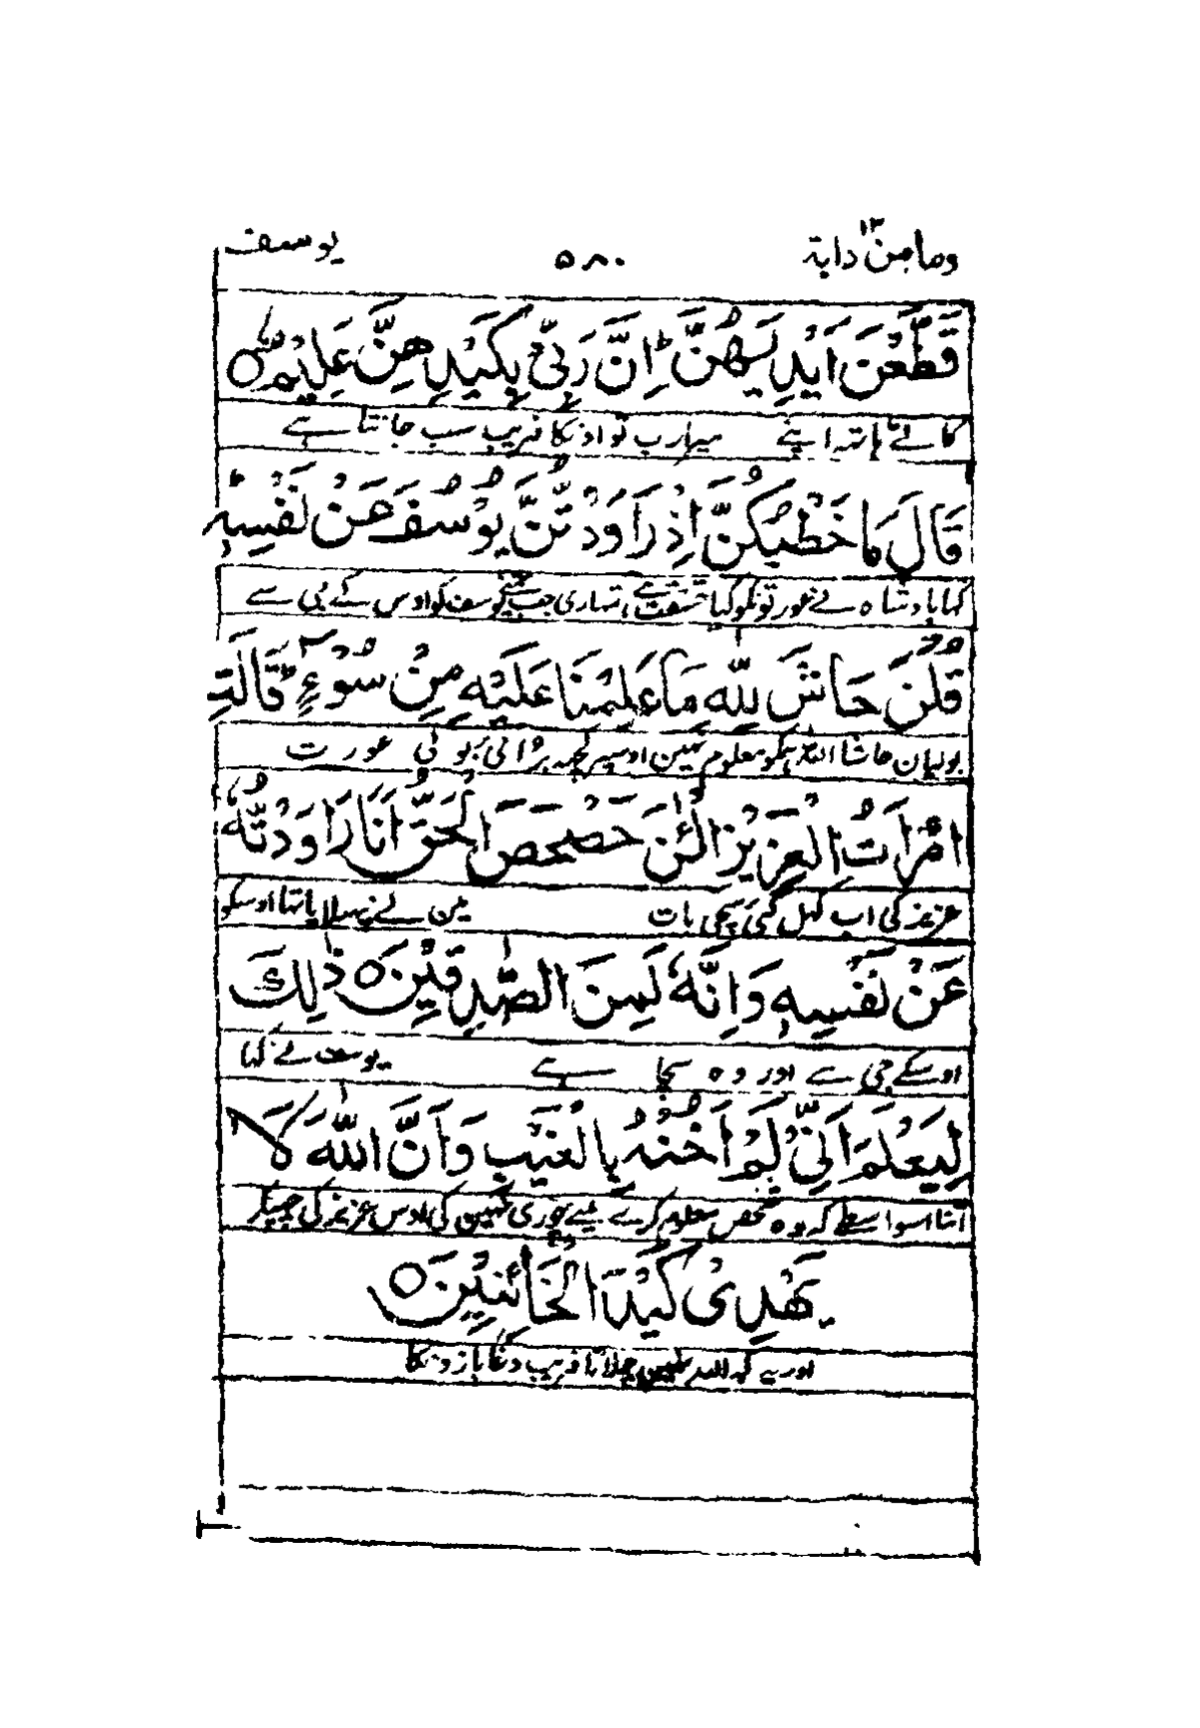 وما من دابة ١٢ ۵۸۰ یوسف
قَطَّعْنَ اَيْدِيَهُنَّ ؕ اِنَّ رَبِّيْ بِكَيْدِهِنَّ عَلِيْمٌ ○
کاٹے ہاتہہ اپنے میرا رب تو اونکا فریب سب جانتا ہے
قَالَ مَا خَطْبُكُنَّ اِذْ رَاوَدْتُّنَّ يُوْسُفَ عَنْ نَّفْسِهٖ ؕ
کہا بادشاہ نے عورتونکو کیا حقیقت ہے تمہاری جب یوسف کو اوس کے جی سے
قُلْنَ حَاشَ لِلّٰهِ مَا عَلِمْنَا عَلَيْهِ مِنْ سُوْٓءٍ ؕ قَالَتِ
بولیان حاشا اللہ ہمکو معلوم نہین اوسپر کچہہ برائی بولی عورت
امْرَاَتُ الْعَزِيْزِ الْـٰٔنَ حَصْحَصَ الْحَقُّ اَنَا رَاوَدْتُّهٗ
عزیز کی اب کہل گئی سچی بات مین نے پہسلایا تہا اوسکو
عَنْ نَّفْسِهٖ وَاِنَّهٗ لَمِنَ الصّٰدِقِيْنَ ○ ذٰلِكَ
اوسکے جی سے اور وہ سچا ہے یوسف نے کہا
لِيَعْلَمَ اَنِّيْ لَمْ اَخُنْهُ بِالْغَيْبِ وَاَنَّ اللّٰهَ لَا
اتنا اسواسطے کہ وہ شخص معلوم کرے مینے چوری نہین کی اوس عزیز کی چھپکر
يَهْدِيْ كَيْدَ الْخَائِنِيْنَ ○
اور یہ کہ اللہ نہین چلاتا فریب دغابازونکا